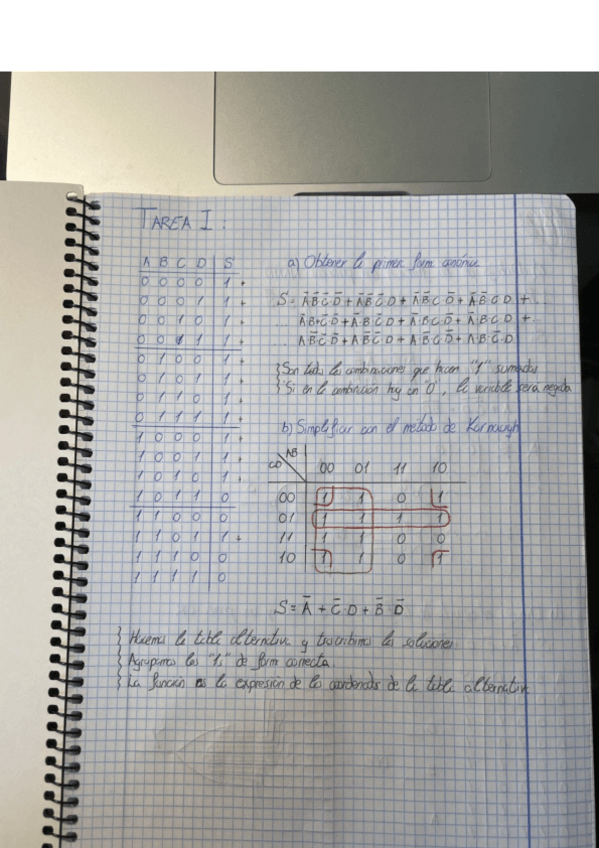 TAREA I :
A B C D S
0 0 0 0 1 +
0 0 0 1 1 +
0 0 1 0 1 +
0 0 1 1 1 +
0 1 0 0 1 +
0 1 0 1 1 +
0 1 1 0 1 +
0 1 1 1 1 +
1 0 0 0 1 +
1 0 0 1 1 +
1 0 1 0 1 +
1 0 1 1 0
1 1 0 0 0
1 1 0 1 1 +
1 1 1 0 0
1 1 1 1 0
a) Obtener la primer form canónica
S = 
} Son todas las combinaciones que hacen "1" sumadas
} Si en la combinación hay un "0", la variable será negada
b) Simplificar con el método de Karnaugh
AB
CD 00 01 11 10
00 1 1 0 1
01 1 1 1 1
11 1 1 0 0
10 1 1 0 1
S = A̅ + C̅·D + B̅·D̅
} Hacemos la tabla alternativa y trascribimos las soluciones
} Agrupamos los "1s" de form correcta
} La función es la expresión de las coordenadas de la tabla alternativa